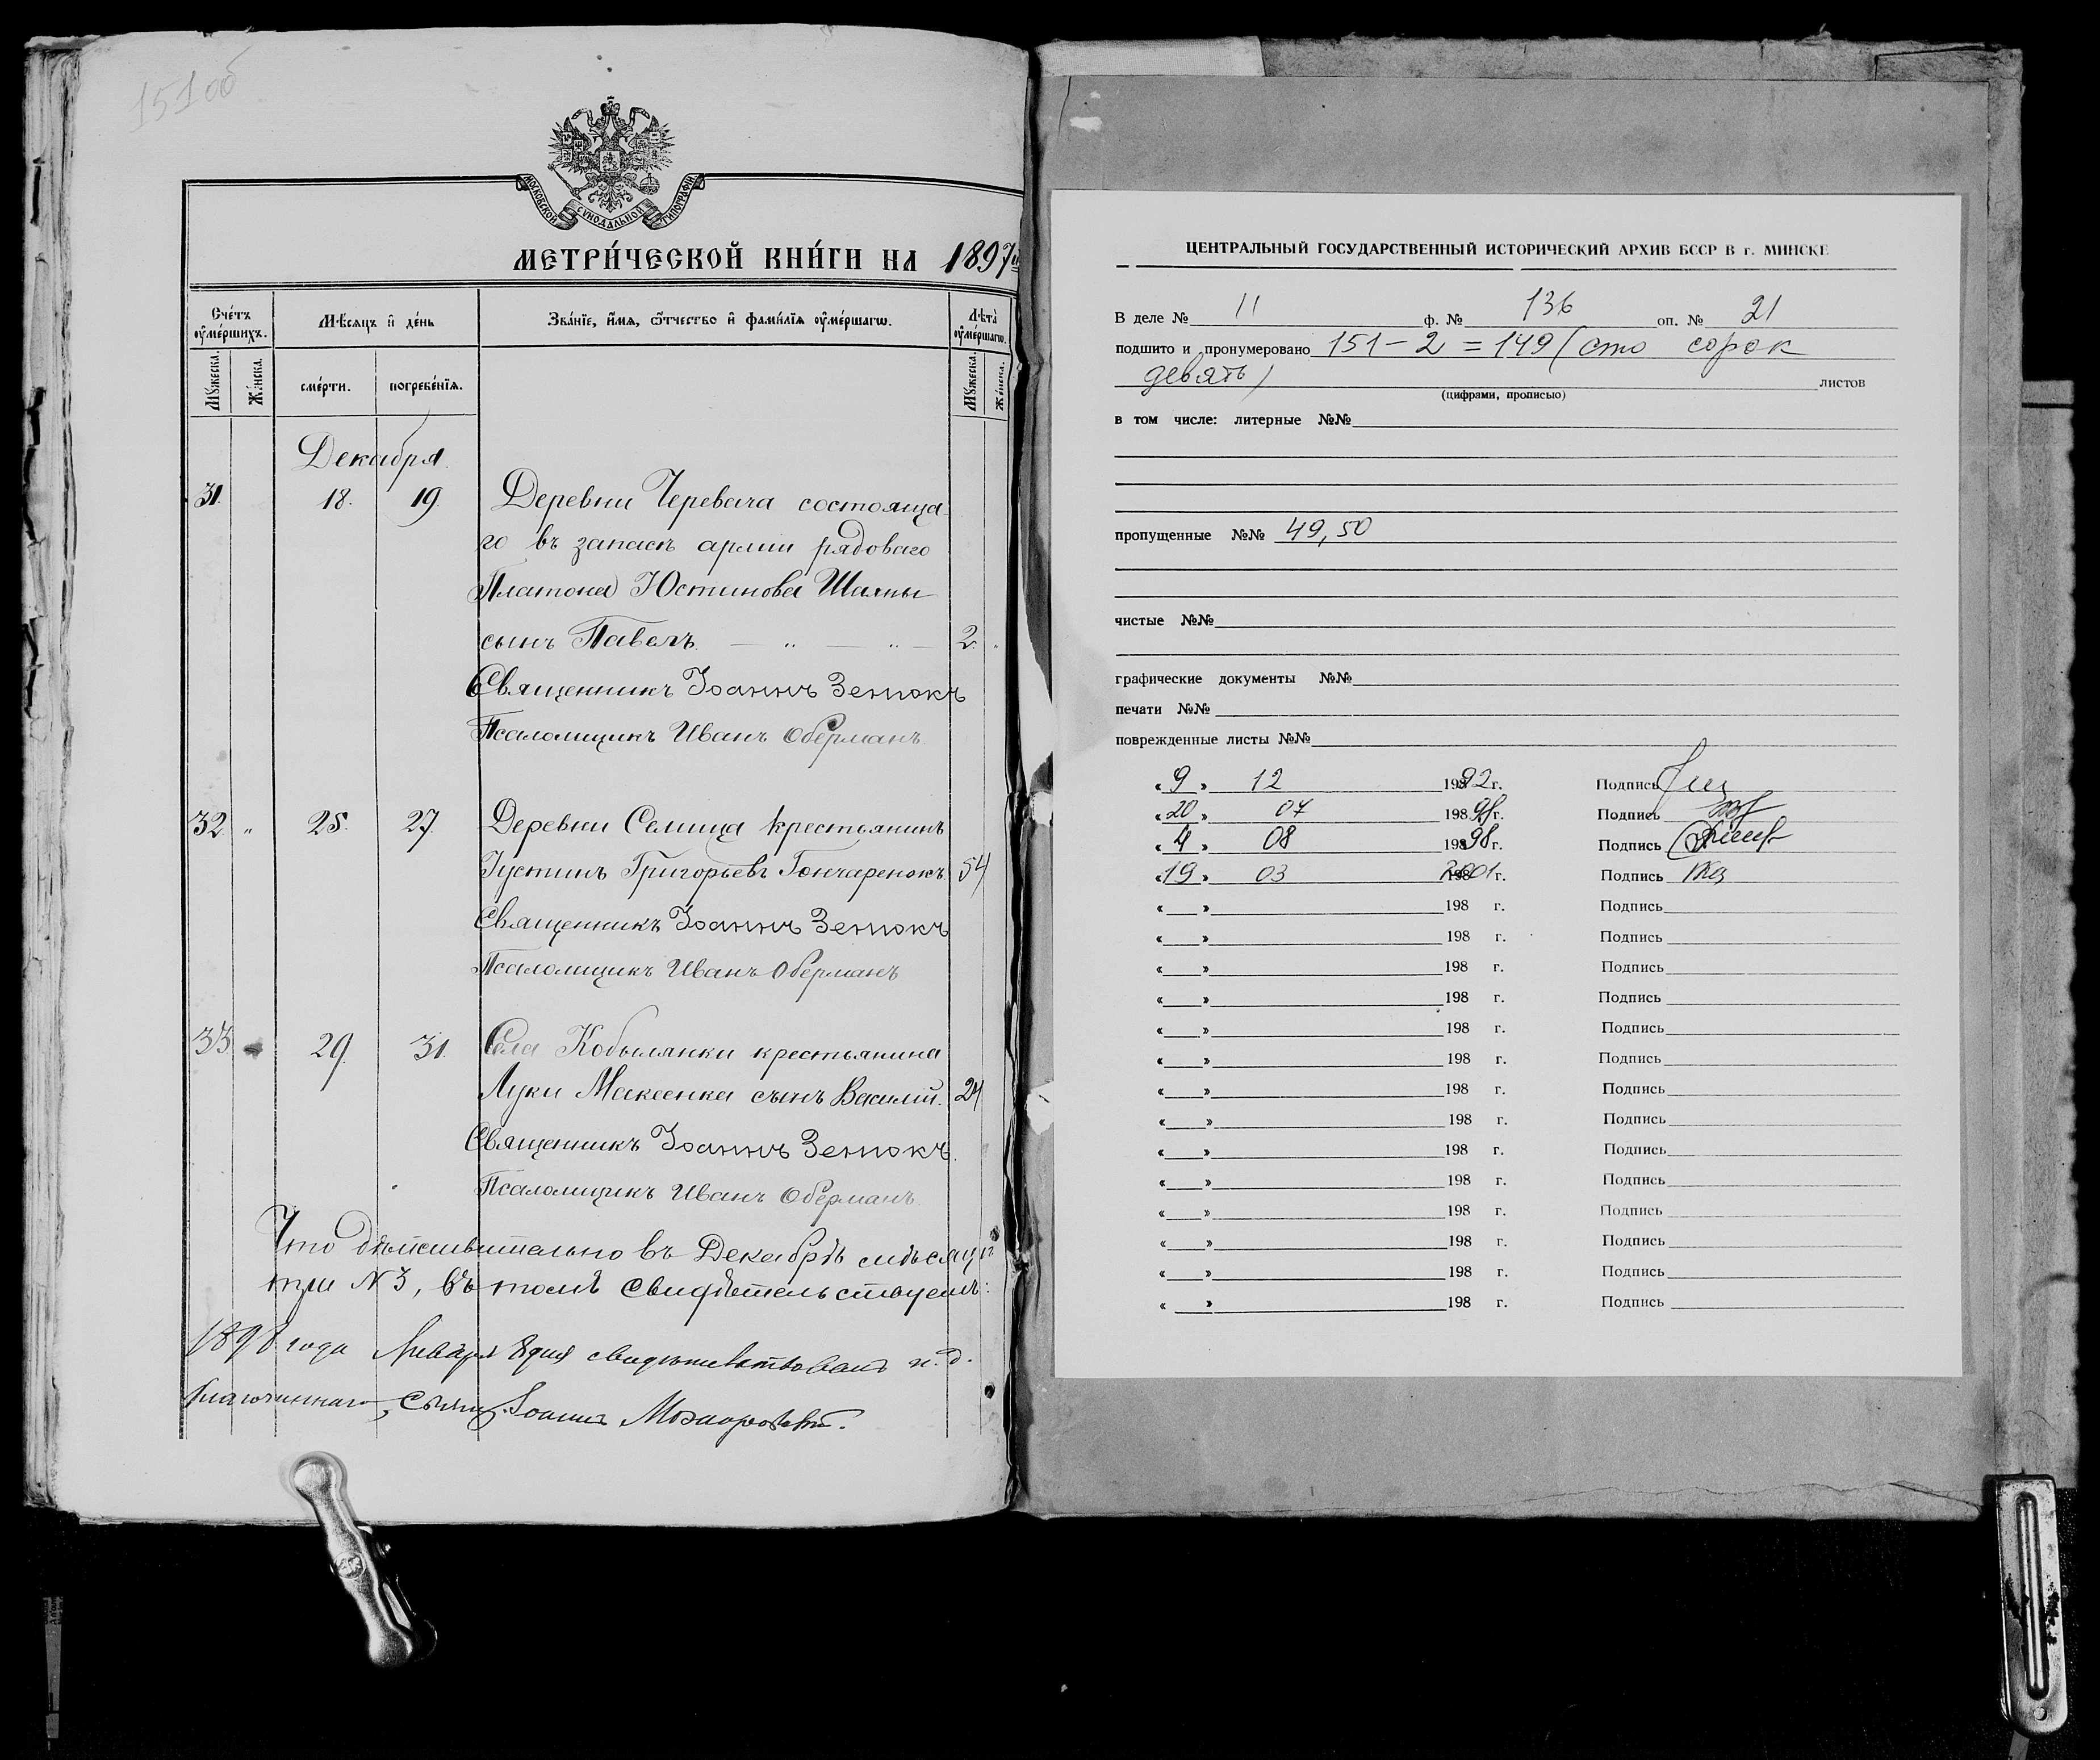 151об
МОСКОВСКОЙ СѴНОДАЛЬНОЙ ТИПОГРАФІИ
МЕТРИ́ЧЕСКОЙ КНИ́ГИ НА 1897
Сче́тъ ᲂу҆ме́ршихъ.
Мѣ́сяцъ и҆ де́нь
Зва́нїе, и҆́мѧ, ѻ҆́тчество и҆ фами́лїѧ ᲂу҆ме́ршагѡ.
Лѣта̀ ᲂу҆ме́ршагѡ.
Мꙋ́жеска.
Же́нска.
сме́рти.
погребе́нїѧ.
Мꙋ́жеска.
Же́нска.
Декабря.
31. 18. 19. Деревни Черевача состояща-
го въ запасѣ арміи рядоваго
Платона Юстинова Шаяпы
сынъ Павелъ. — " — " — 2.
Священникъ Іоаннъ Зенюкъ
Псаломщикъ Иванъ Оберманъ.
32. " 25. 27. Деревни Селища крестьянинъ
Іустинъ Григорьевъ Гончаренокъ 54
Священникъ Іоаннъ Зенюкъ
Псаломщикъ Иванъ Оберманъ
33 29. 31. Села Кобылянки крестьянина
Луки Макеенка сынъ Василій. 24
Священникъ Іоаннъ Зенюкъ.
Псаломщикъ Иванъ Оберманъ.
Что дѣйствительно въ Декабрѣ мѣсяцѣ
три № 3, въ томъ свидѣтельствуемъ:
1898 года Января 8 дня свидѣтельствовалъ и. д.
благочиннаго, Свящ. Іоаннъ
ЦЕНТРАЛЬНЫЙ ГОСУДАРСТВЕННЫЙ ИСТОРИЧЕСКИЙ АРХИВ БССР В г. МИНСКЕ
В деле № 11 ф. № 136 оп. № 21
подшито и пронумеровано 151-2=149 (сто сорок
девять) листов
(цифрами, прописью)
в том числе: литерные №№
пропущенные №№ 49,50
чистые №№
графические документы №№
печати №№
поврежденные листы №№
«9» 12 1992 г. Подпись
«20» 07 198 98 г. Подпись
«4» 08 198 98 г. Подпись
«19» 03 2001 г. Подпись
«__» 198 г. Подпись
«__» 198 г. Подпись
«__» 198 г. Подпись
«__» 198 г. Подпись
«__» 198 г. Подпись
«__» 198 г. Подпись
«__» 198 г. Подпись
«__» 198 г. Подпись
«__» 198 г. Подпись
«__» 198 г. Подпись
«__» 198 г. Подпись
«__» 198 г. Подпись
«__» 198 г. Подпись
«__» 198 г. Подпись